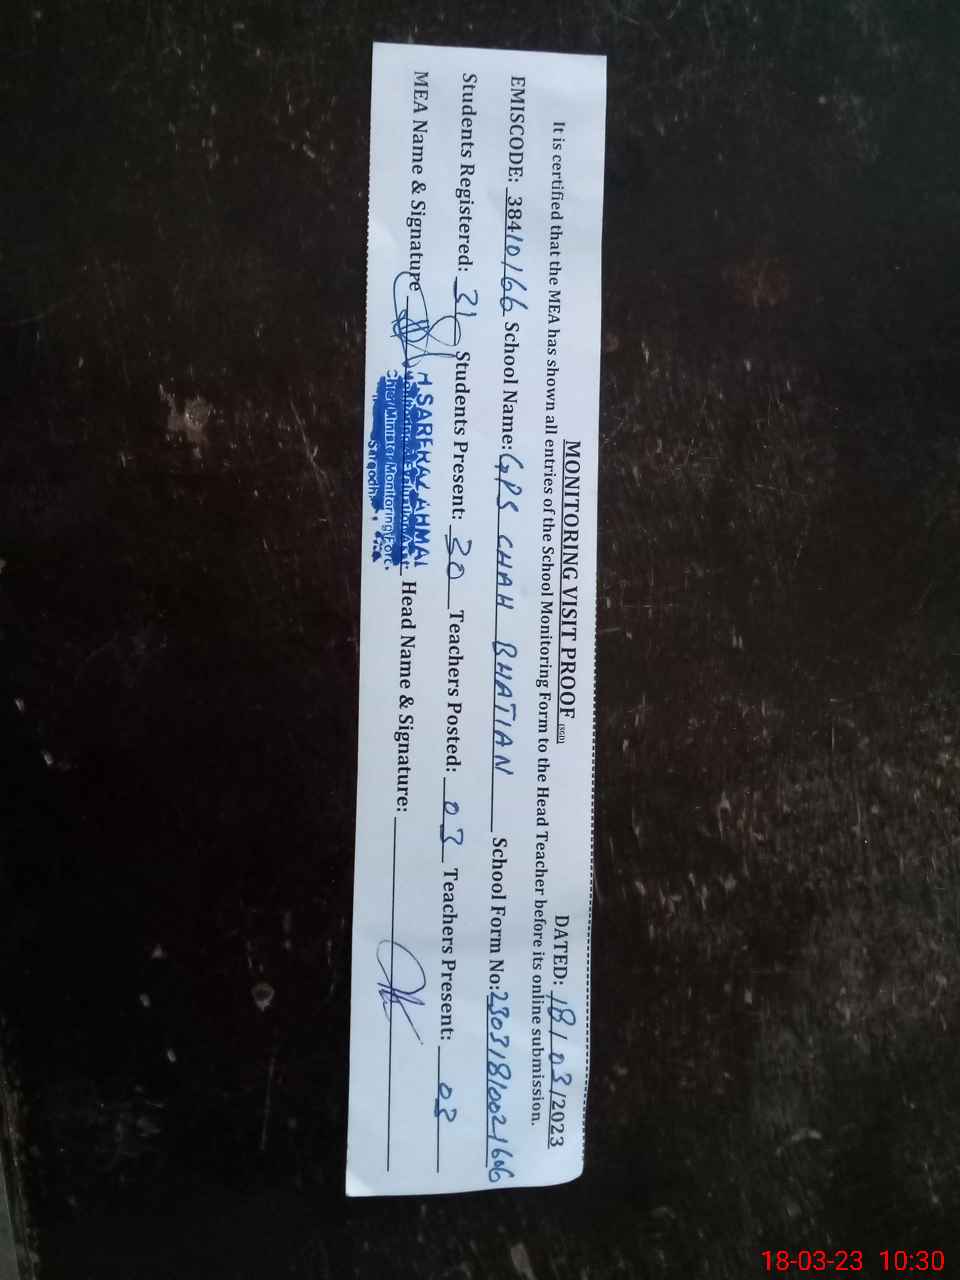 MONITORING VISIT PROOF (SGD) DATED: 18/03/2023
It is certified that the MEA has shown all entries of the School Monitoring Form to the Head Teacher before its online submission.
EMISCODE: 38410166 School Name: GPS CHAH BHATIAN School Form No: 23031810021606
Students Registered: 31 Students Present: 30 Teachers Posted: 03 Teachers Present: 03
MEA Name & Signature Head Name & Signature:
SARFRAZ AHMAD
Monitoring & Evaluation Asstt:
Chief Minister Monitoring Force
Sargodha
18-03-23 10:30